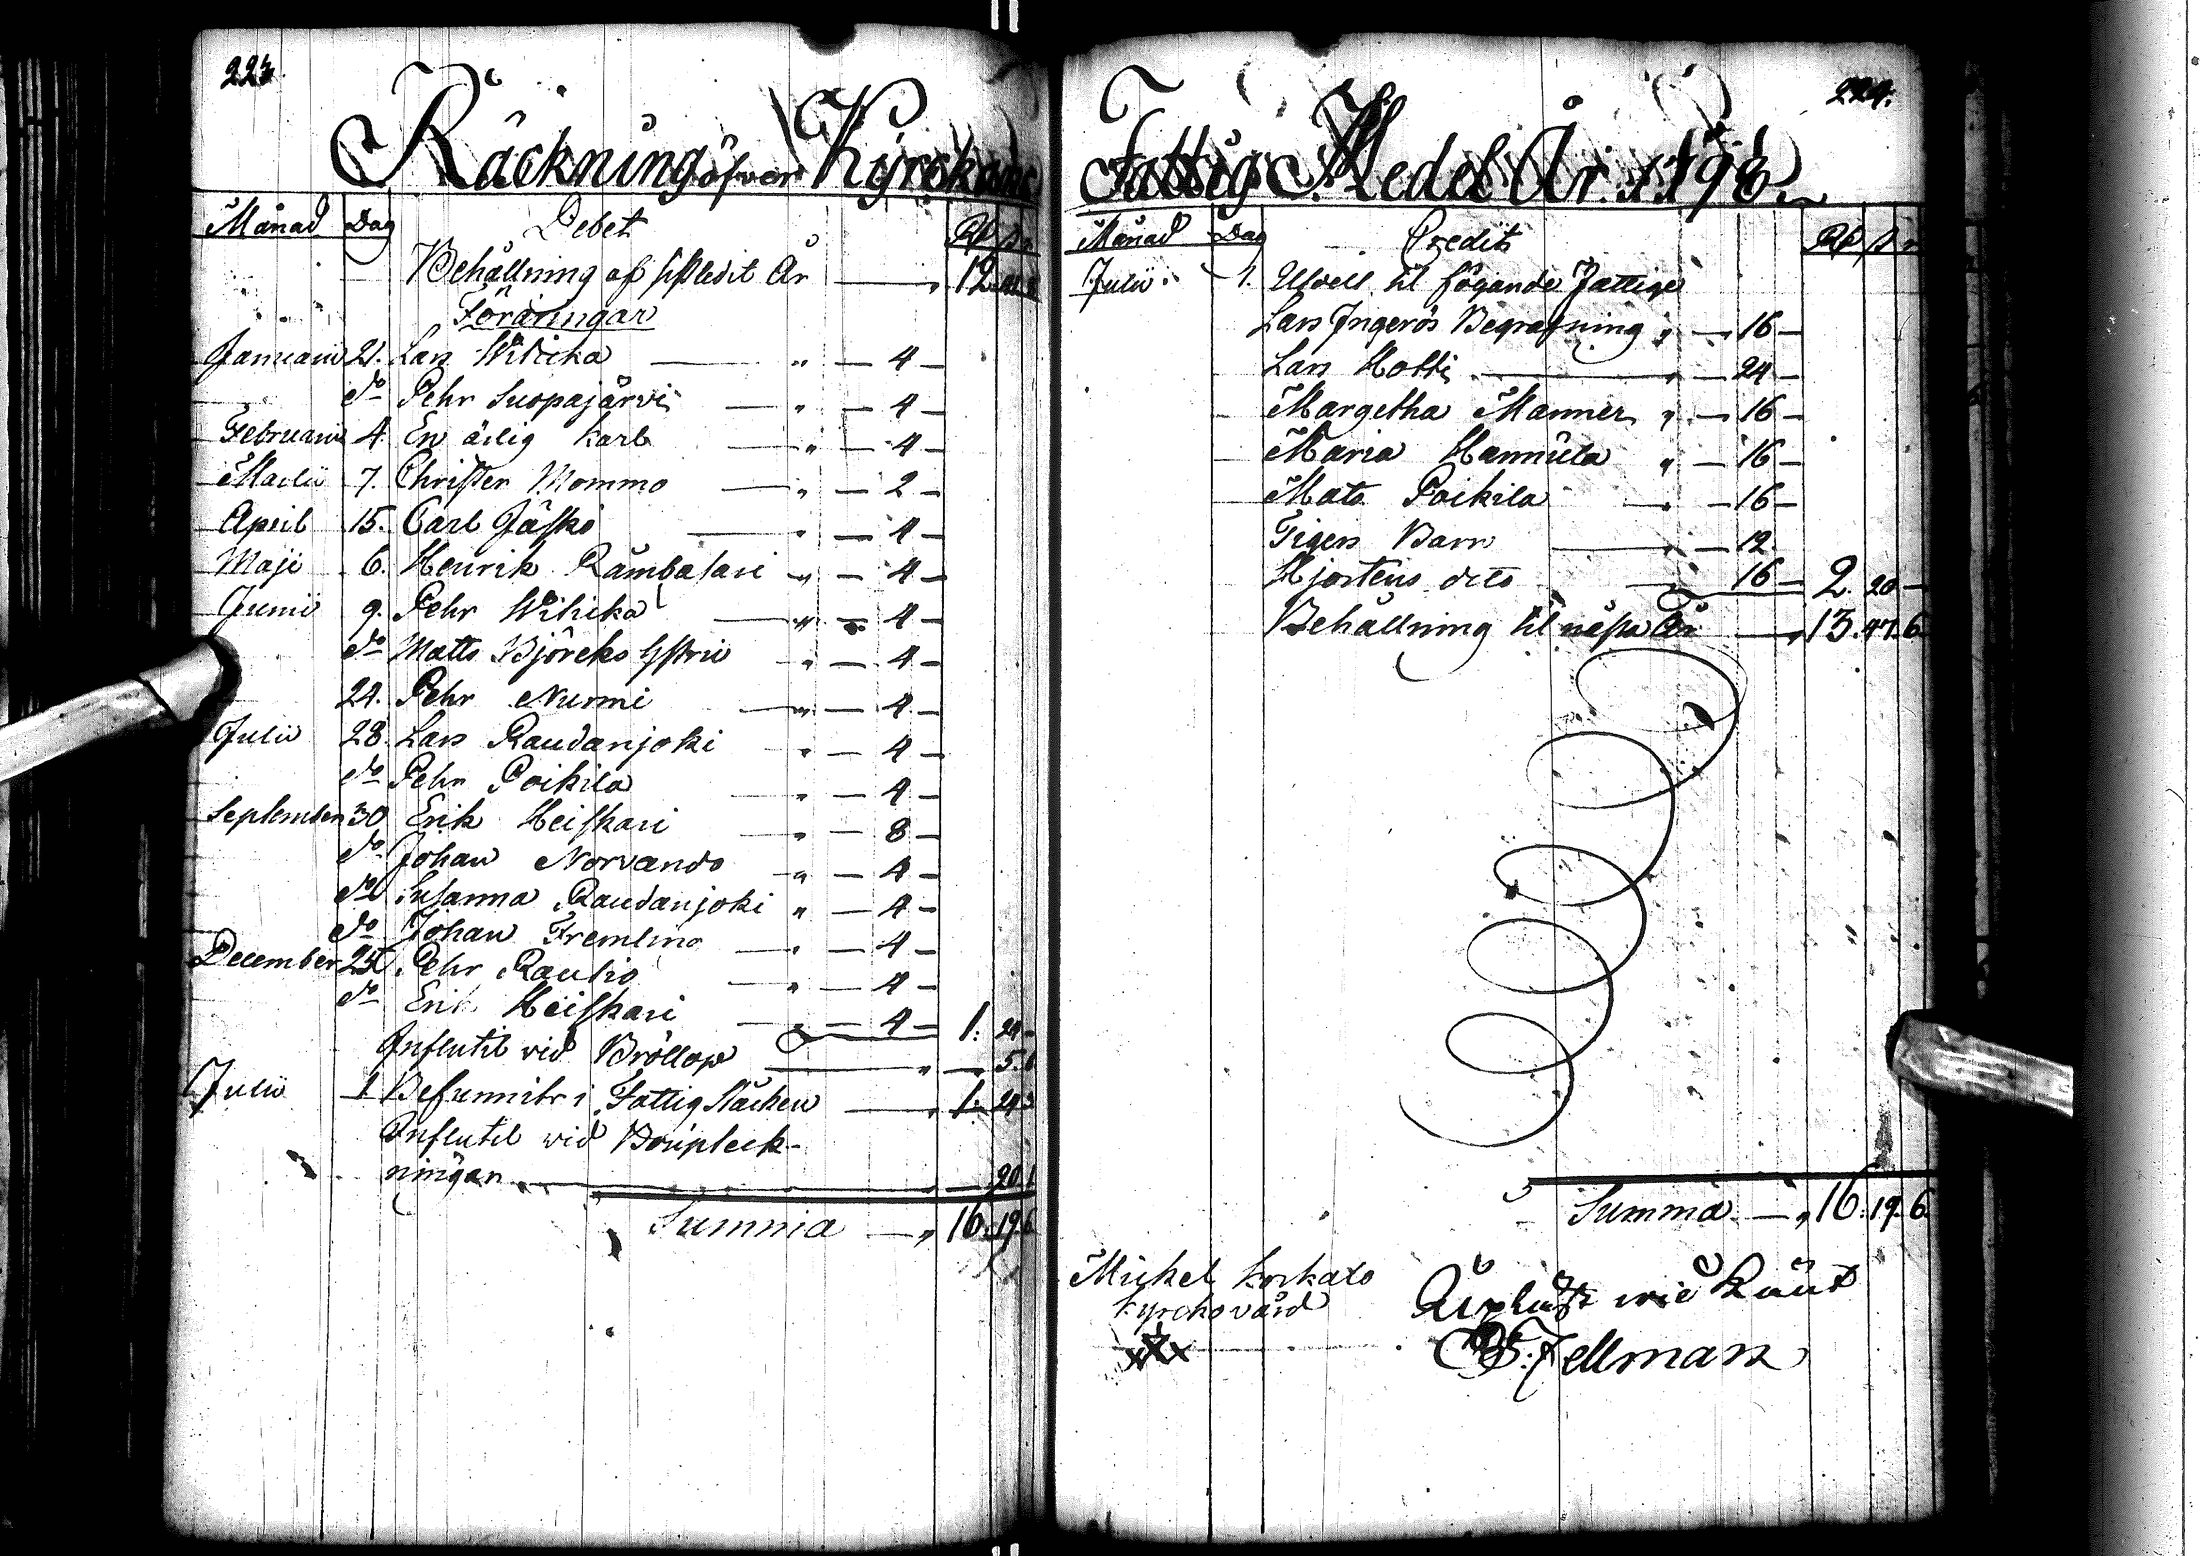 223.
Räckning öfver Kyrckans
Månad Dag Debet Rd ß r
Behållning af sistledit År — " 12.
Föräringar
Januarii 21. Lars Wilicka — " — 4 —
do Pehr Suopajärvi — " — 4 —
Februarii 4. En ärlig karl — " — 4 —
Martii 7. Christer Mommo — " — 2 —
April 15. Carl Jäskö — " — 4 —
Maji 6. Henrik Rämbalari " — 4 —
Junii 9. Pehr Wilicka — " — 4 —
do Matts Björcks Hustru " — 4 —
24. Pehr Nurmi — " — 4 —
Julii 28. Lars Raudanjoki " — 4 —
do Pehr Poikila — " — 4 —
September 30 Erik Heiskari — " — 8 —
do Johan Norvando — " — 4 —
do Susanna Raudanjoki " — 4 —
do Johan Fremling — " — 4 —
December 25 Pehr Rautio — " — 4 —
do Erik Heiskari — " — 4 — 1: 24 —
Influtit vid Bröllop — " — 5.
Julii 1 Befunnits i Fattig Stäcken — " 1: 24 3
Influtit vid
ningar — " — 20 1
Summa — " 16. 19. 6
224.
Fattig Medel År 1798.
Månad Dag Credit Rd ß r
Julii 1. Utdelt til fögande Fattige
Lars Ingerös Begrafning " — 16 —
Lars Hotti — " — 24 —
Margetha Manner " — 16 —
Maria Hannula " — 16 —
Mats Poikila — " — 16 —
Tigers Barn — " — 12.
Hjortens dito — 16 — 2. 20 —
Behållning til nästa År — " 13. 47. 6
Summa — " 16. 19. 6.
Michel Korkalo
Kyrckovärd
Upläst wid
E: Fellman